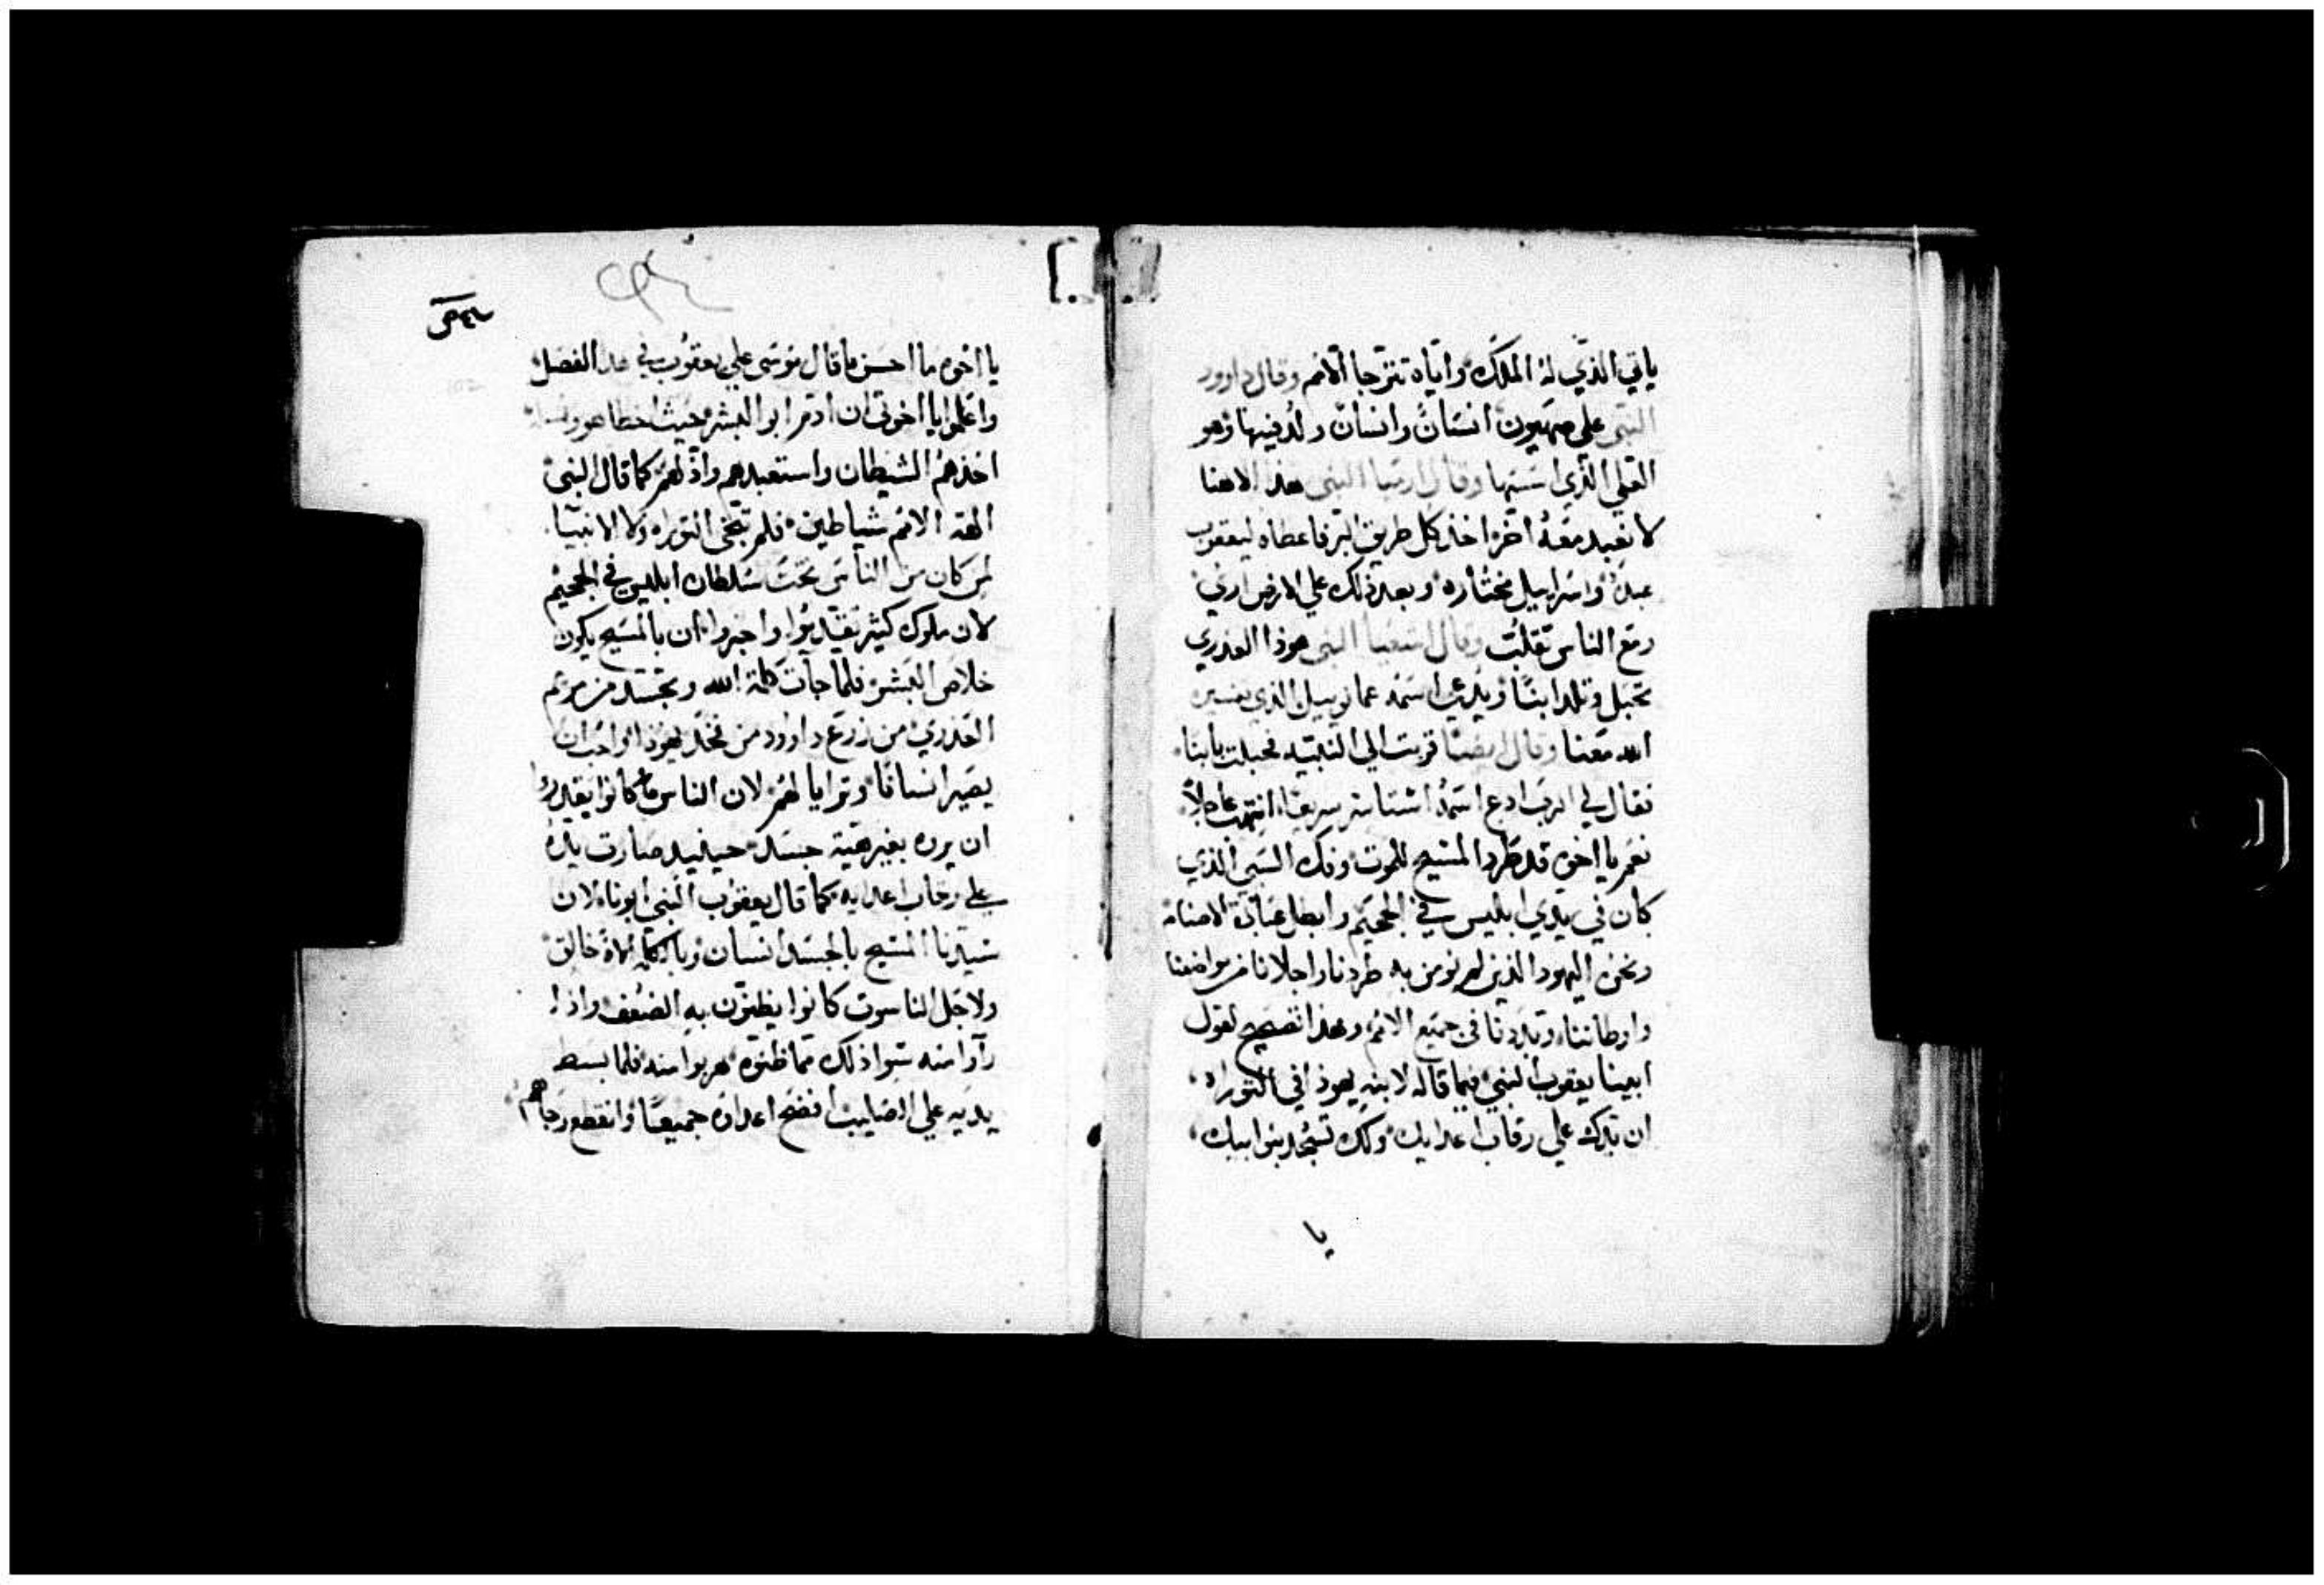 ياتي الذي له الملك واياه تترجا الامم وقال داوود
النبي علي صهيون انسان وانسان ولد فيها وهو
العلي الذي اسسها وقال ارميا النبي هذا الاهنا
لا نعبد معه اخر اخذ كل طريق البر فاعطاه ليعقوب
عبده واسراييل مختاره وبعد ذلك علي الارض اري
ومع الناس تقلب وقال اشعيا النبي هوذا العذري
تحبل وتلد ابنا ويدعي اسمه عمانوييل الذي تفسيره
الله معنا وقال ايضا قربت الي النبيه فحبلت بابنا
فقال لي الرب ادع اسمه سريعا انتهب عاجلا
نعم يا اخوه قد طرد المسيح الموت وفك السبي الذي
كان في يدي ابليس في الجحيم وابطل عبادة الاصنام
ونحن اليهود الذين لم نومن به طردنا واجلانا من مواضعنا
واوطاننا وبددنا في جميع الامم وهذا تصحيح لقول
ابينا يعقوب النبي فيما قاله لابنه يهوذا في التوراه
ان يدك علي رقاب اعدايك ولك تسجد بنوا ابيك
يا
يا اخوه ما احسن ما قال موسى علي يعقوب في هذا الفصل
واعلموا يا اخوتي ان ادم ابو البشر حيث اخطا هو ونسله
اخذهم الشيطان واستعبدهم واذلهم كما قال النبي
الهة الامم شياطين فلم تنجي التوراه ولا الانبيا
لمن كان من الناس تحت سلطان ابليس في الجحيم
لان ملوك كثير واخبروا ان بالمسيح يكون
خلاص البشر فلما جات كلمة الله وتجسد من مريم
العذري من زرع داوود من فخد يهوذا واجب ان
يصير انسانا وترايا لهم لان الناس ما كانوا يقدروا
ان يروه بغير هية جسد حينيد صارت يده
علي رقاب اعدايه كما قال يعقوب النبي ابونا لان
سيدنا المسيح بالجسد انسان وبالكلمه الاه خالق
ولاجل الناسوت كانوا يظنون به الضعف واذا
راوا منه سوا ذلك مما ظنوه هربوا منه فلما بسط
يديه علي الصليب افتضح اعداه جميعا وانقطع رجاهم